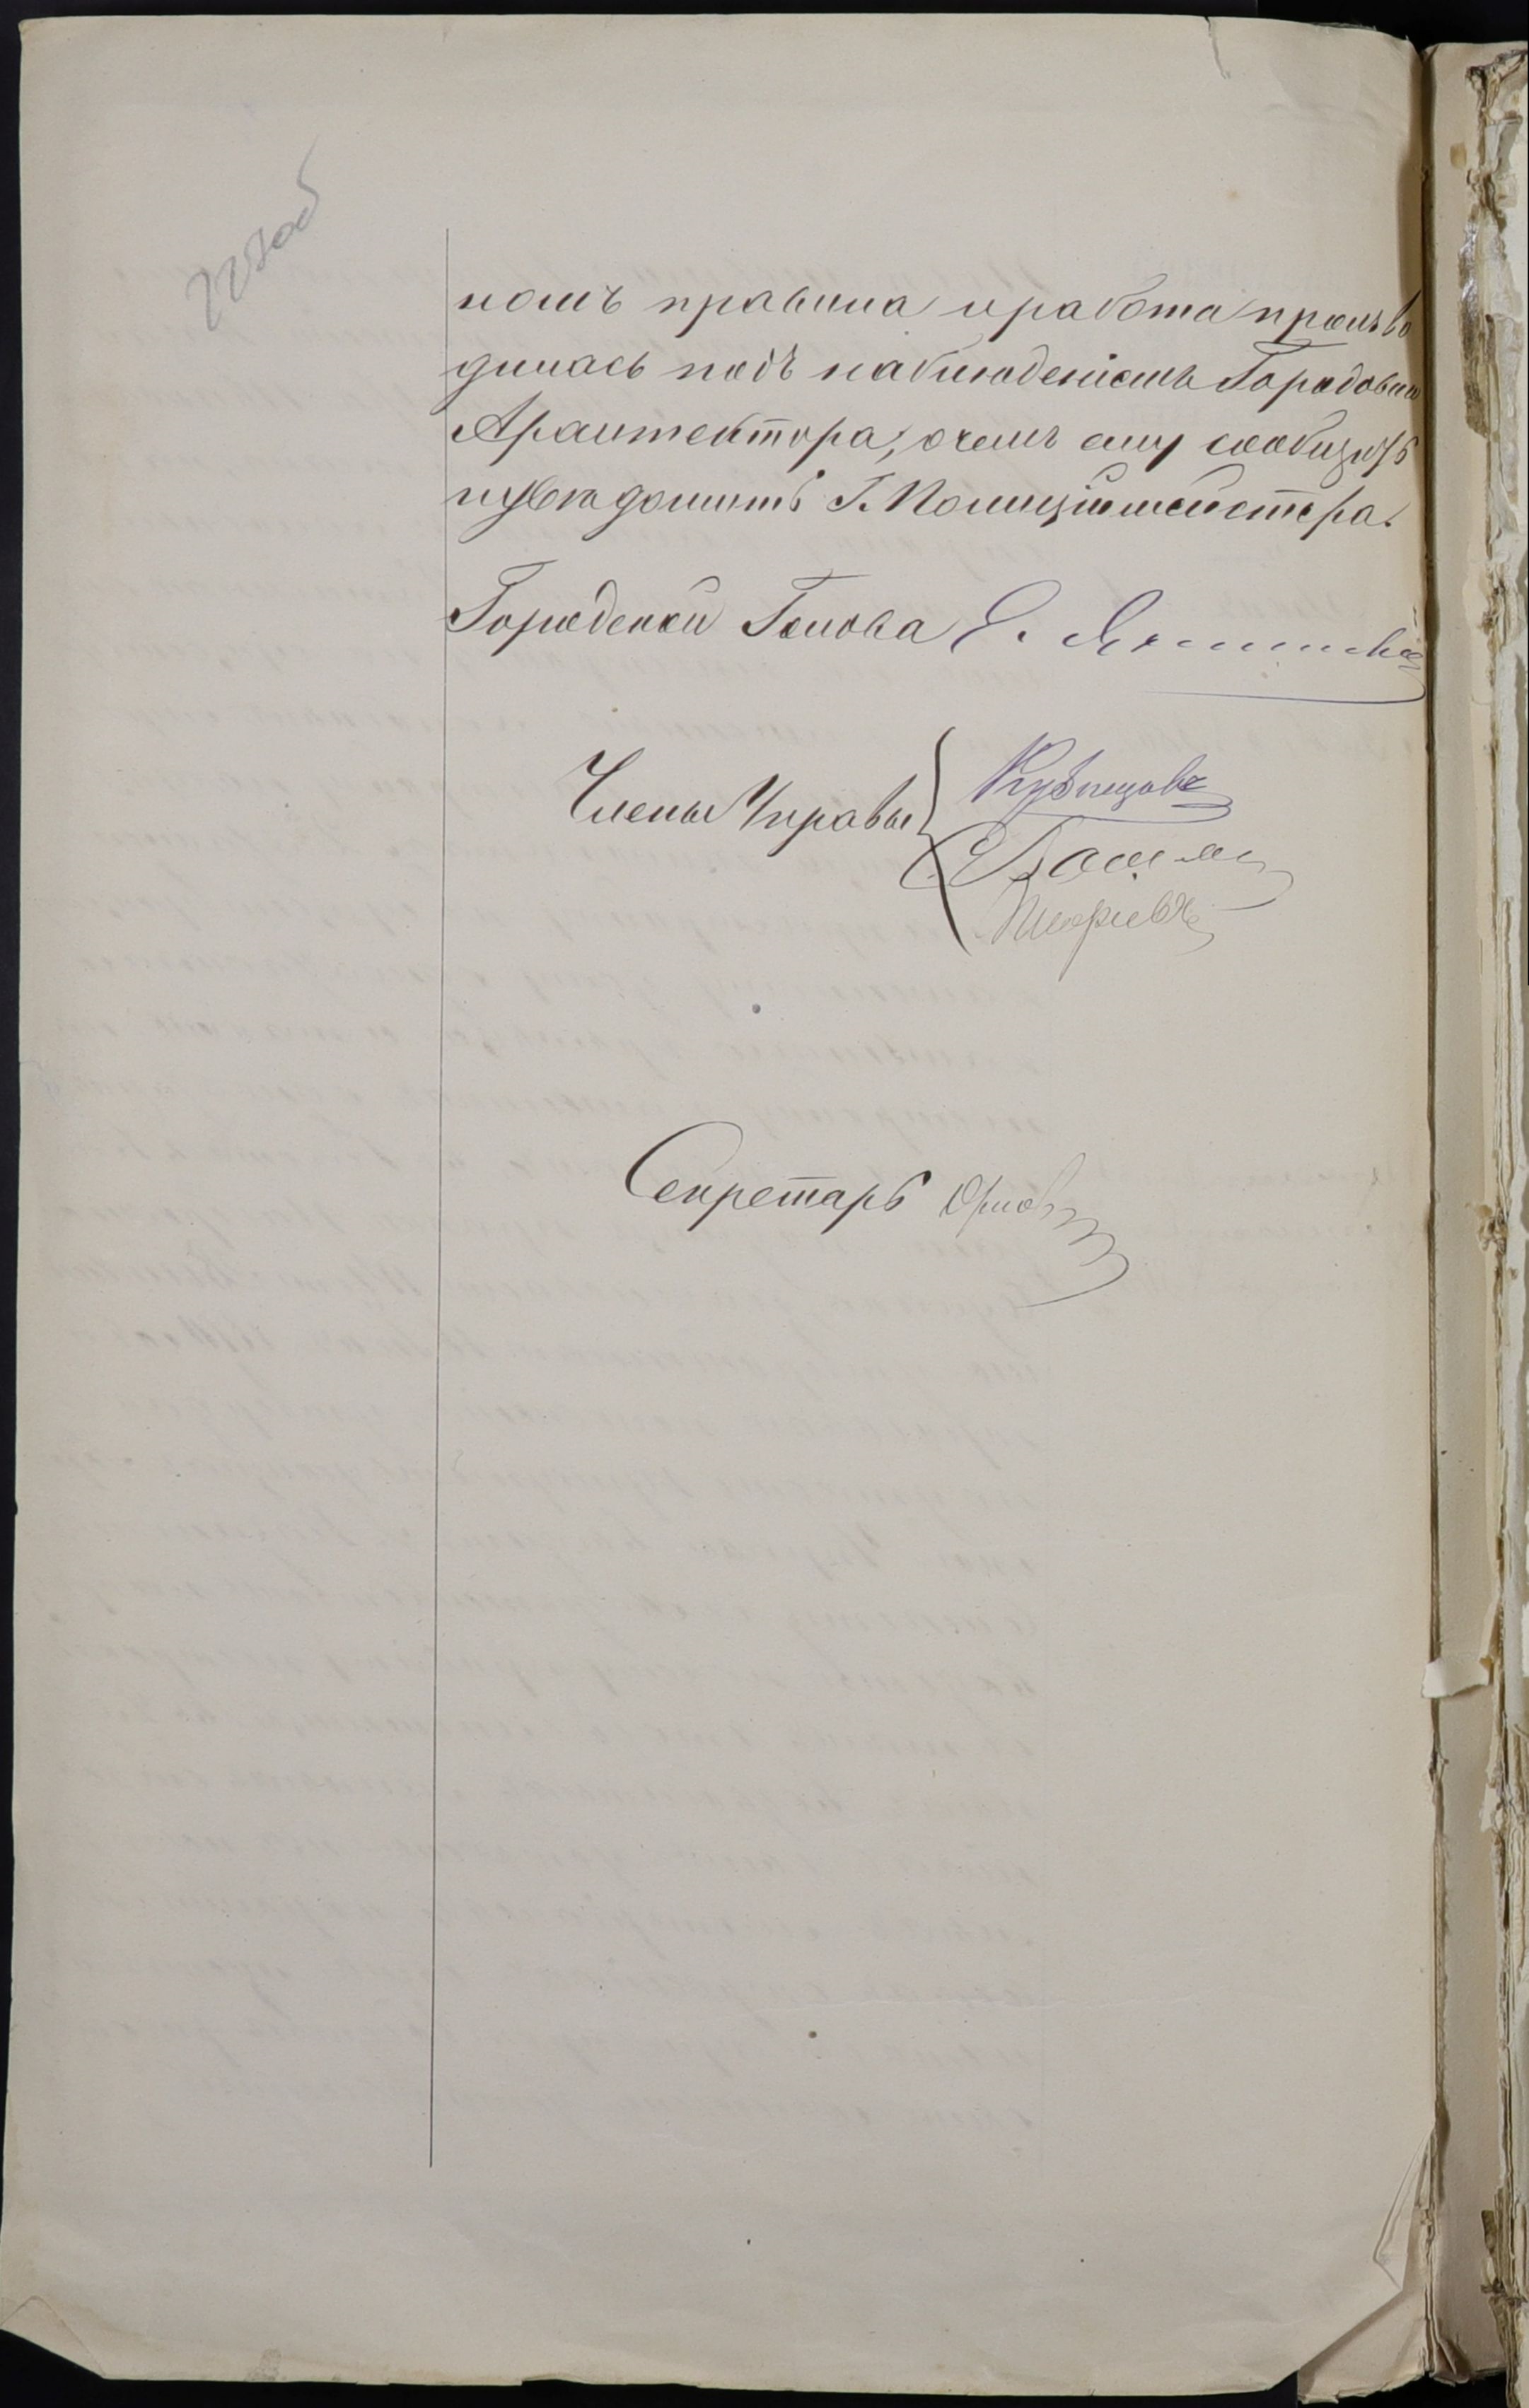 номъ правила и работа произво
дилась подъ наблюденіемъ Городоваго
Архитектора, о чемъ ему сообщить
и увѣдомить Г. Полиціймейстера.
Городской Голова Е.
Члены Управы
Кузнецовъ
Секретарь Орлов